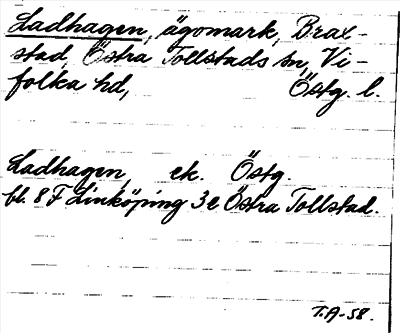 Ladhagen, ägomark, Brax-
stad, Östra Tollstads sn, Vi-
folka hd, Östg. l.
Ladhagen, ek. Östg.
bl. 8 F Linköping 3 e Östra Tollstad.
T.A-58.